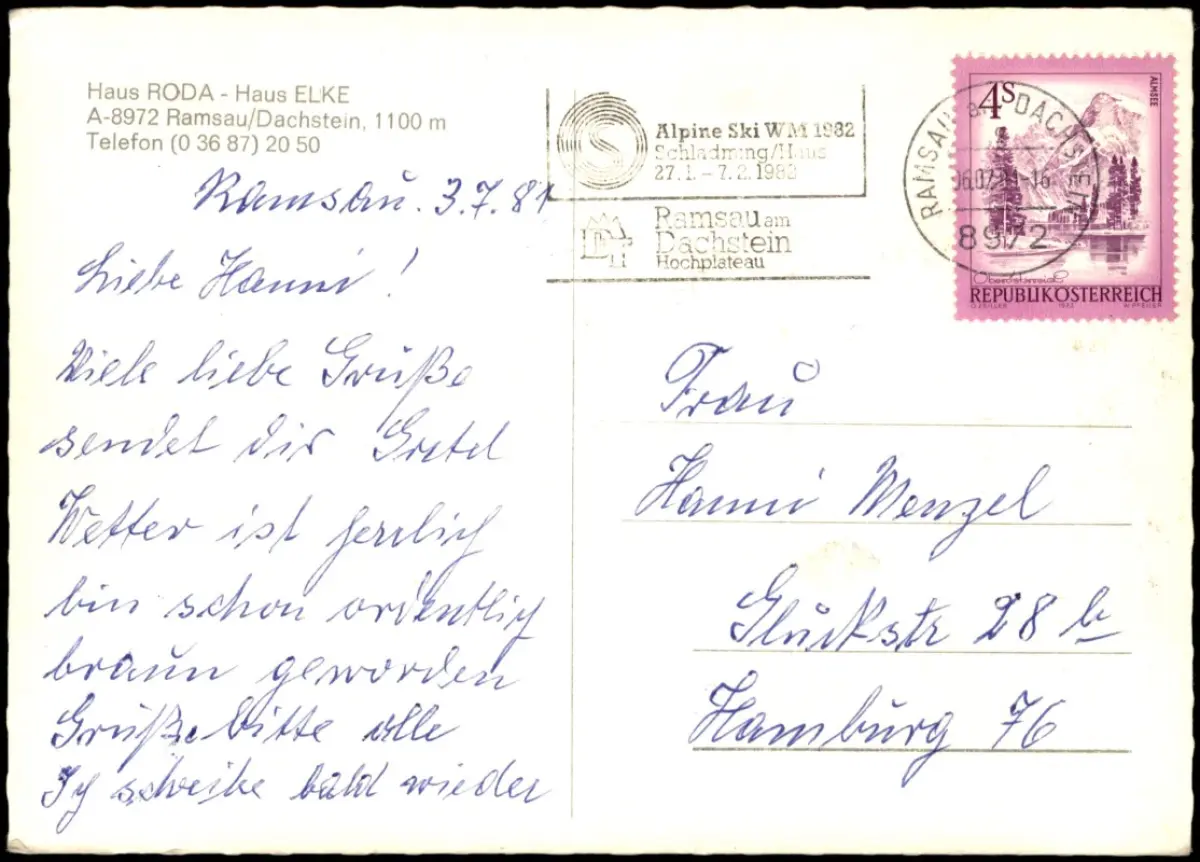 Haus RODA - Haus ELKE
A-8972 Ramsau/Dachstein, 1100 m
Telefon (0 36 87) 20 50
Ramsau. 3.7.81
Liebe Hanni!
Viele liebe Grüße
sendet dir Gretel
Wetter ist herrlich
bin schon ordentlich
braun geworden
Grüße bitte alle
Ich schreibe bald wieder
Alpine Ski WM 1982
Schladming/Haus
27.1. - 7.2.1982
Ramsau am
Dachstein
Hochplateau
RAMSAU DACHSTEIN
8972
4S
ALMSEE
Oberösterreich
REPUBLIK ÖSTERREICH
Frau
Hanni Menzel
Glückstr 28 b
Hamburg 76